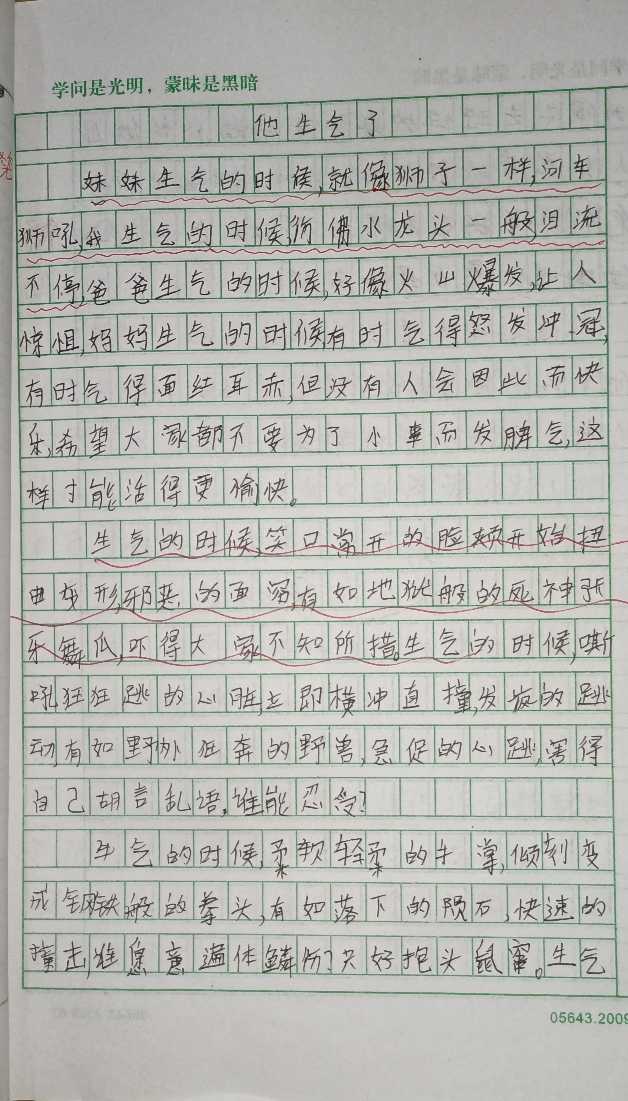 学问是光明，蒙昧是黑暗
他生气了
妹妹生气的时候，就像狮子一样，河车
狮吼，我生气的时候，彷彿水龙头一般泪流
不停，爸爸生气的时候，好像火山爆发，让人
惊怛，妈妈生气的时候，有时气得怒发冲冠，
有时气得面红耳赤，但没有人会因此而快
乐，希望大家都不要为了小事而发脾气，这
样才能活得更愉快。
生气的时候，笑口常开的脸颊开始扭
曲变形，邪恶的面容，有如地狱般的死神张
牙舞爪，吓得大家不知所措。生气的时候，嘶
吼狂狂跳的心脏，立即横冲直撞，发疯的跳
动，有如野外狂奔的野兽，急促的心跳，害得
自己胡言乱语，谁能忍受？
生气的时候，柔软轻柔的手掌，倾刻变
成钢铁般的拳头，有如落下的陨石，快速的
撞击，谁愿意遍体鳞伤？只好抱头鼠窜。生气
05643.2009